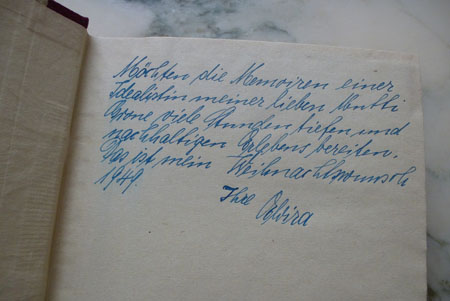 Möchten die Memoiren einer
Idealistin meiner lieben Mutti
viele Stunden tiefen und
nachhaltigen Erlebens bereiten.
Das ist mein Weihnachtswunsch
1949.
Ihre